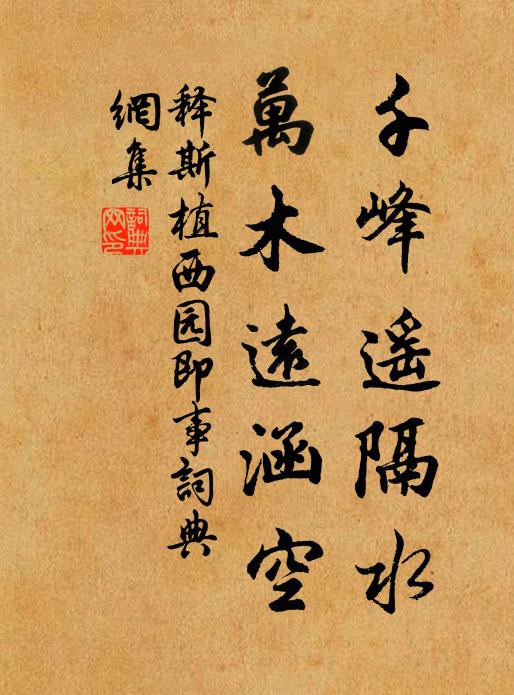 千峰遥隔水
萬木遠涵空
释斯植西园即事詞典
網集
詞典
网印